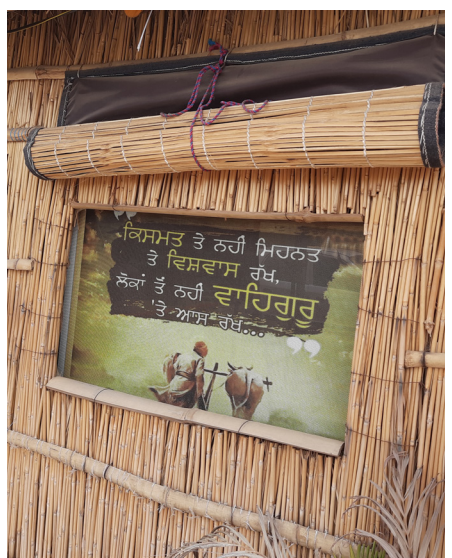 "
ਕਿਸਮਤ ਤੇ ਨਹੀਂ ਮਿਹਨਤ
ਤੇ ਵਿਸ਼ਵਾਸ ਰੱਖ,
ਲੋਕਾਂ ਤੋਂ ਨਹੀਂ ਵਾਹਿਗੁਰੂ
'ਤੇ ਆਸ ਰੱਖ...
"